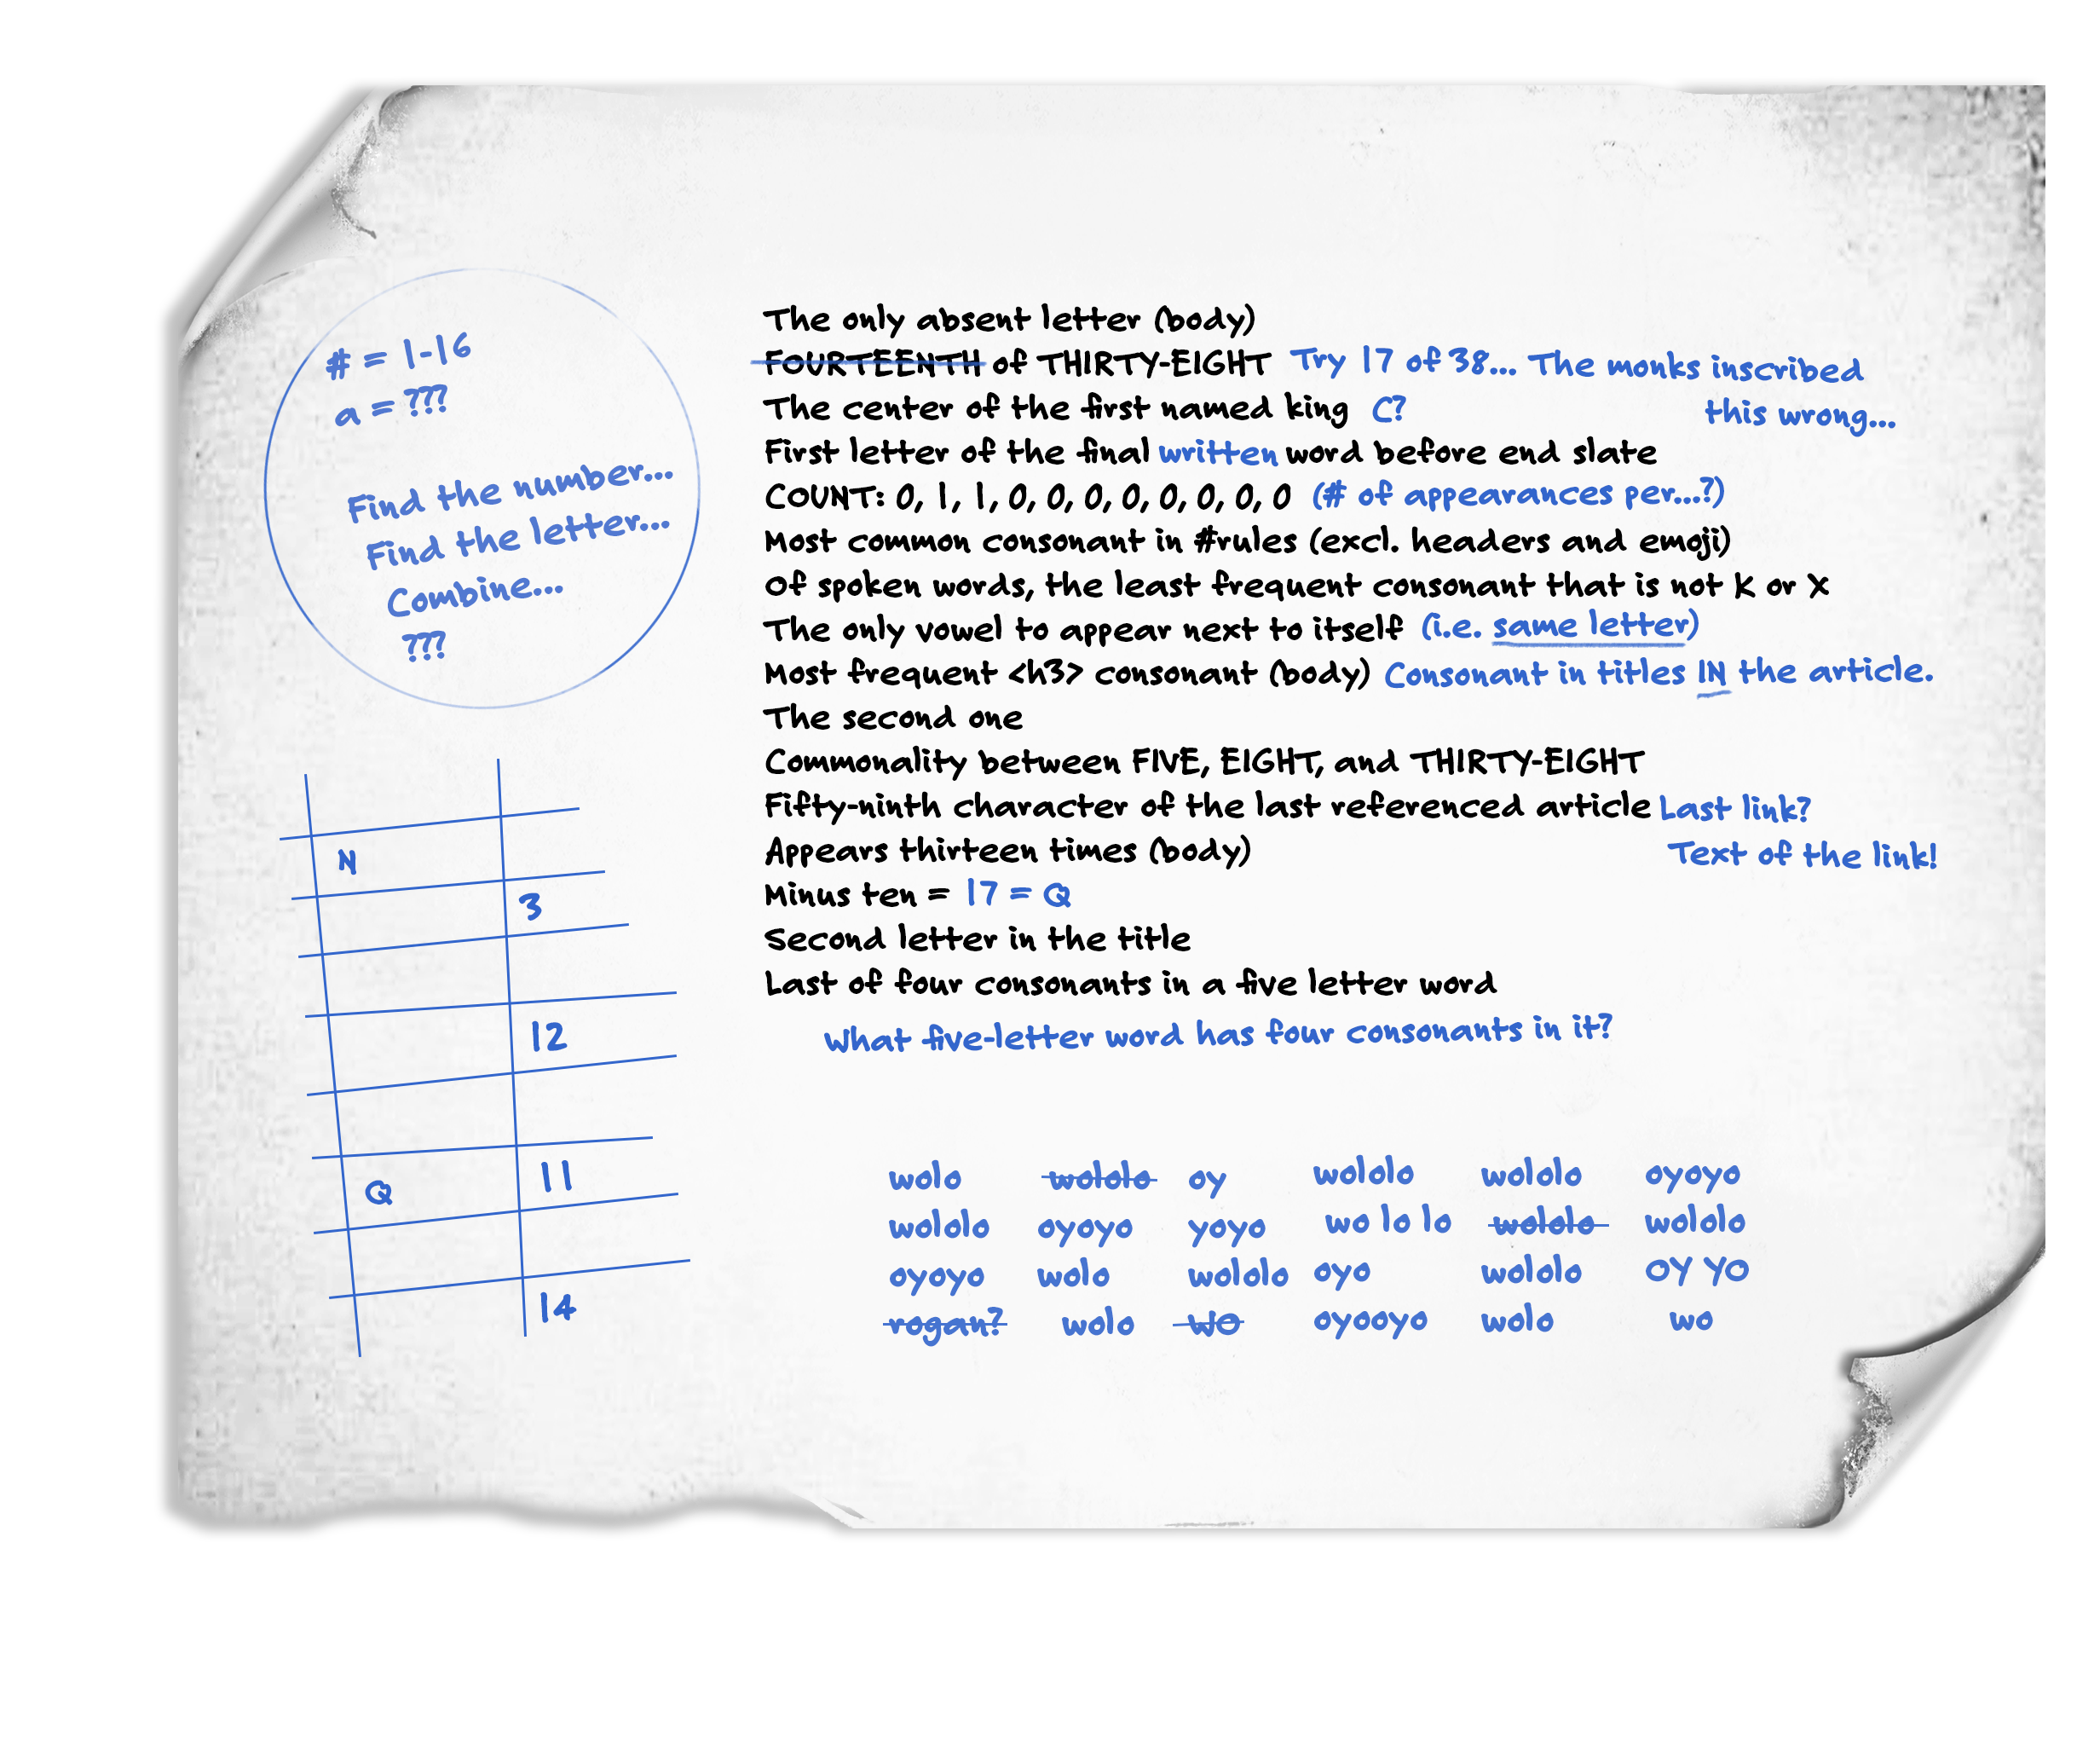 # = 1-16
a = ???
Find the number...
Find the letter...
Combine...
???
The only absent letter (body)
FOURTEENTH of THIRTY-EIGHT Try 17 of 38... The monks inscribed
this wrong...
The center of the first named king C?
First letter of the final written word before end slate
COUNT: 0, 1, 1, 0, 0, 0, 0, 0, 0, 0, 0 (# of appearances per...?)
Most common consonant in #rules (excl. headers and emoji)
Of spoken words, the least frequent consonant that is not K or X
The only vowel to appear next to itself (i.e. same letter)
Most frequent <h3> consonant (body) Consonant in titles IN the article.
The second one
Commonality between FIVE, EIGHT, and THIRTY-EIGHT
Fifty-ninth character of the last referenced article Last link?
Appears thirteen times (body) Text of the link!
Minus ten = 17 = Q
Second letter in the title
Last of four consonants in a five letter word
What five-letter word has four consonants in it?
N
3
12
Q 11
14
wolo wololo oy wololo wololo oyoyo
wololo oyoyo yoyo wo lo lo wololo wololo
oyoyo wolo wololo oyo wololo OY YO
rogan? wolo WO oyooyo wolo wo